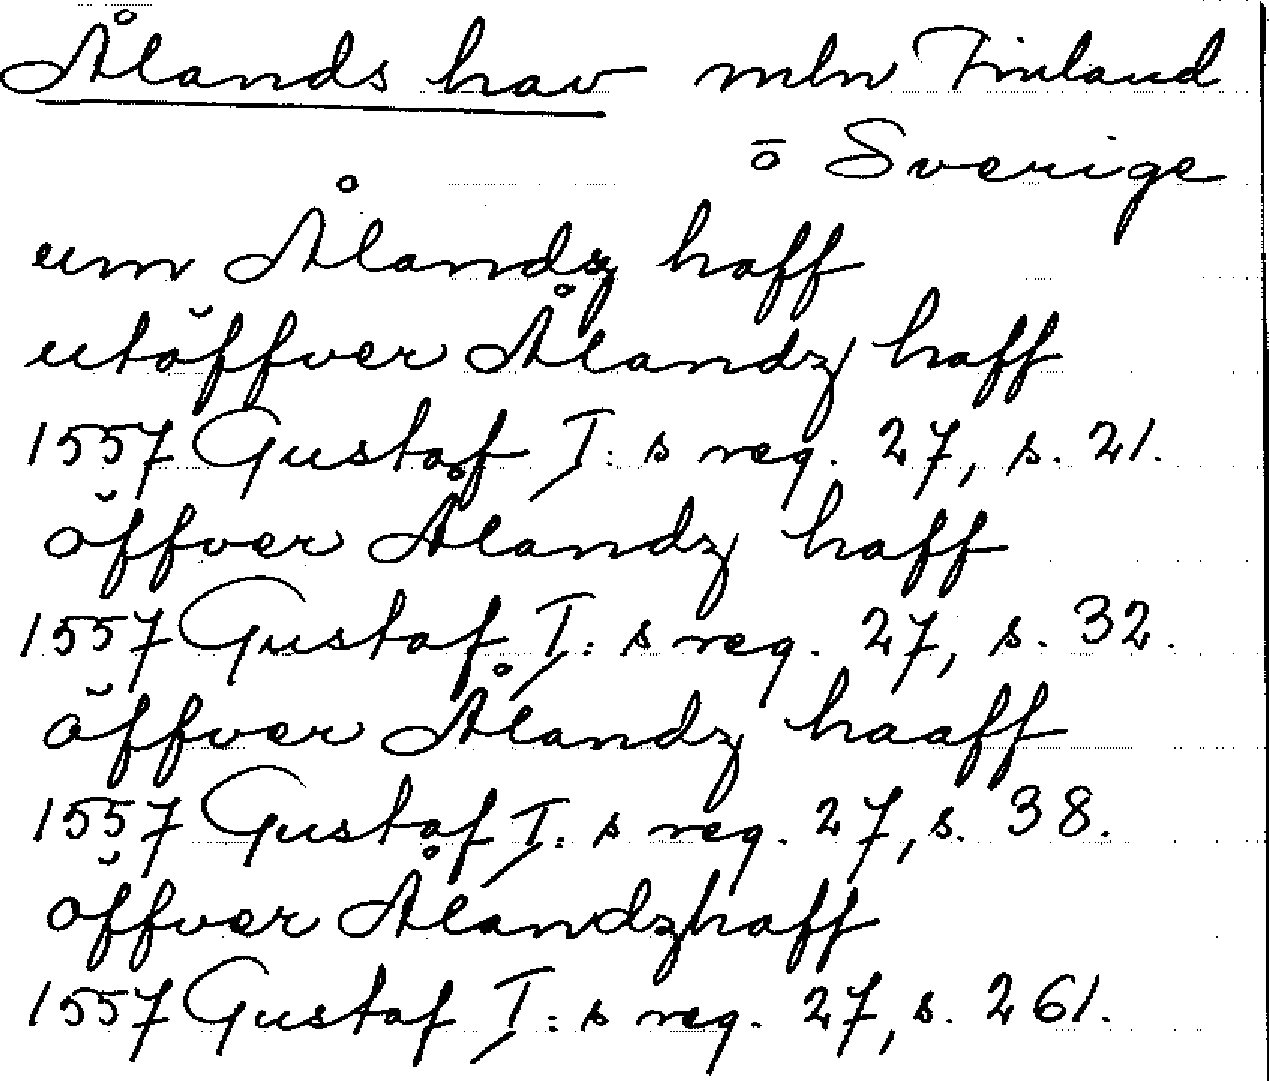 Ålands hav mln Finland
ō Sverige
um Ålandz haff
utöffver Ålandz haff
1557 Gustaf I: s reg. 27, s. 21.
öffver Ålandz haff
1557 Gustaf I: s reg. 27, s. 32.
öffver Ålandz haaff
1557 Gustaf I: s reg. 27, s. 38.
öffver Ålandzhaff
1557 Gustaf I: s reg. 27, s. 261.